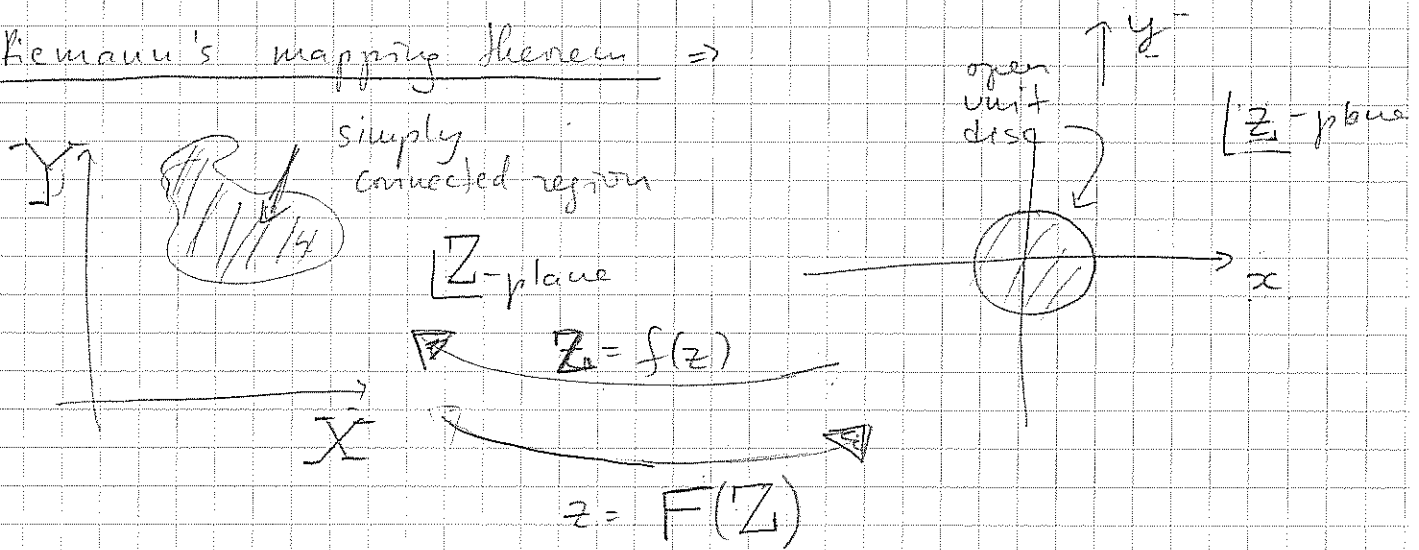 Riemann's mapping theorem ⇒
simply
connected region
Y
Z-plane
X
open
unit
disc
y
z-plane
x
Z = f(z)
z = F(Z)